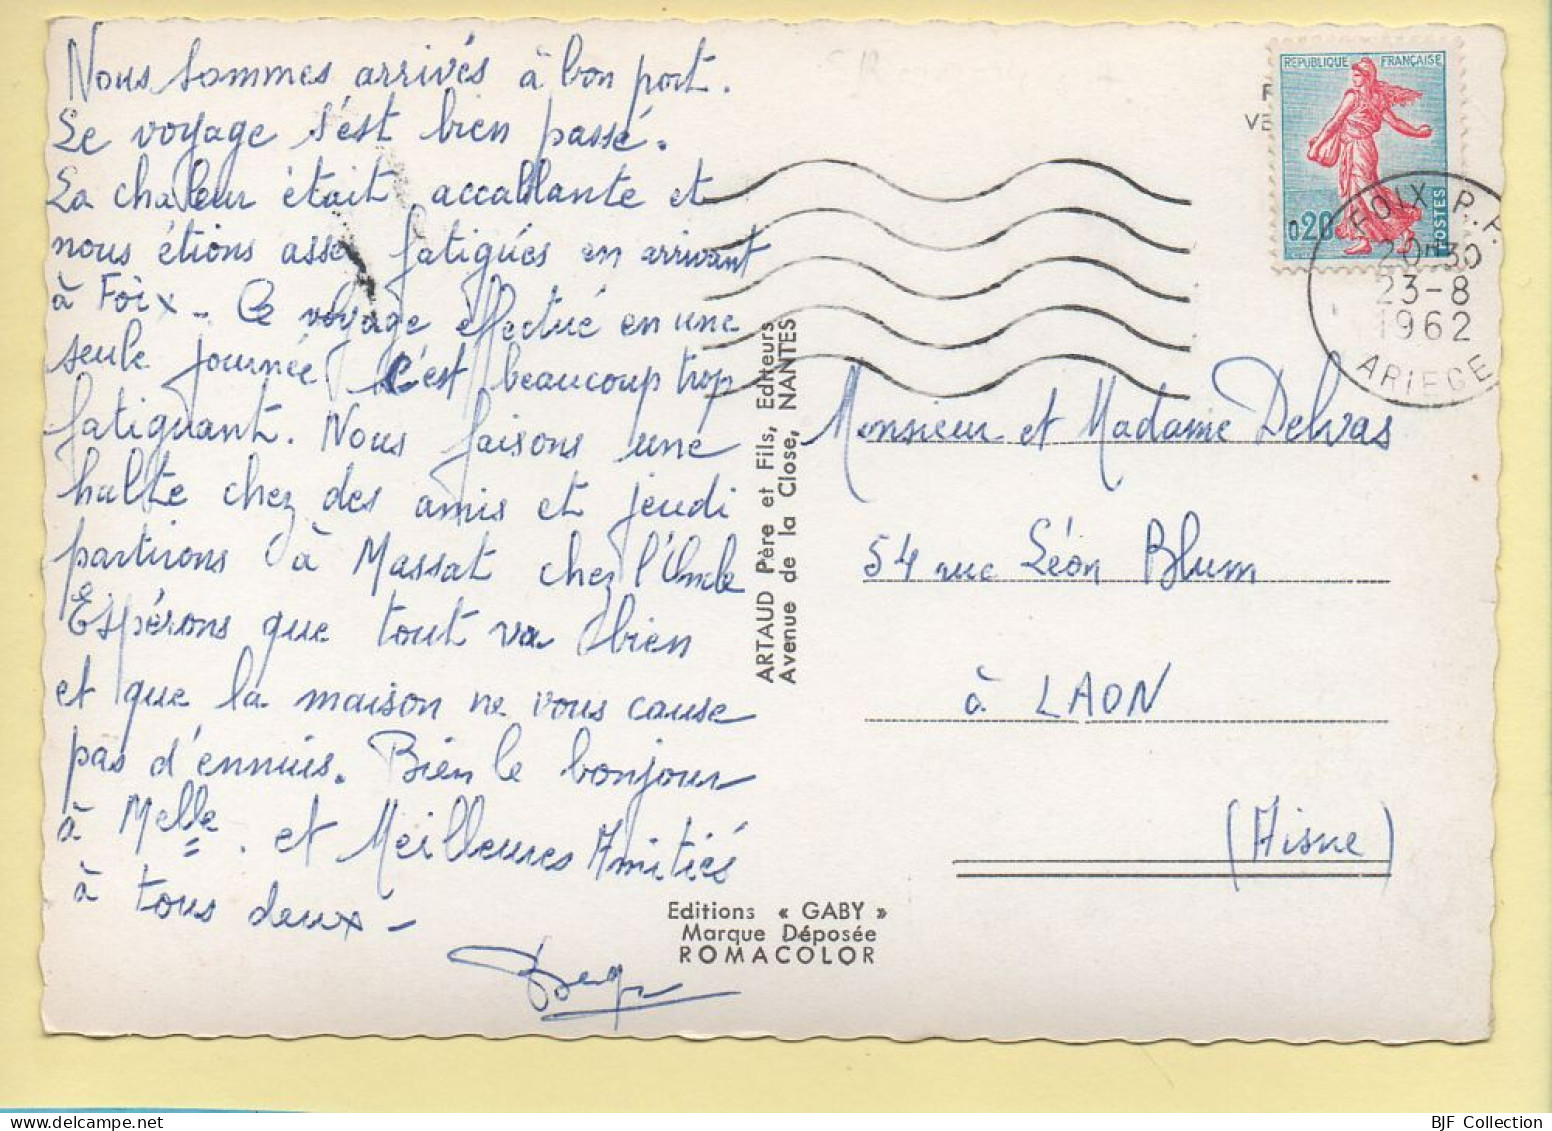 Nous sommes arrivés à bon port.
Le voyage s'est bien passé.
La chaleur était accablante et
nous étions assez fatigués en arrivant
à Foix - Ce voyage effectué en une
seule journée c'est beaucoup trop
fatiguant. Nous faisons une
halte chez des amis et jeudi
partirons à Massat chez l'Oncle
Espérons que tout va bien
et que la maison ne vous cause
pas d'ennuis. Bien le bonjour
à Melle. et Meilleures Amitiés
à tous deux -
ARTAUD Père et Fils, Editeurs
Avenue de la Close, NANTES
Editions « GABY »
Marque Déposée
ROMACOLOR
REPUBLIQUE FRANÇAISE
0,20
POSTES
FOIX R.P.
20H30
23-8
1962
ARIEGE
Monsieur et Madame Delvas
54 rue Léon Blum
à LAON
(Aisne)
BJF Collection